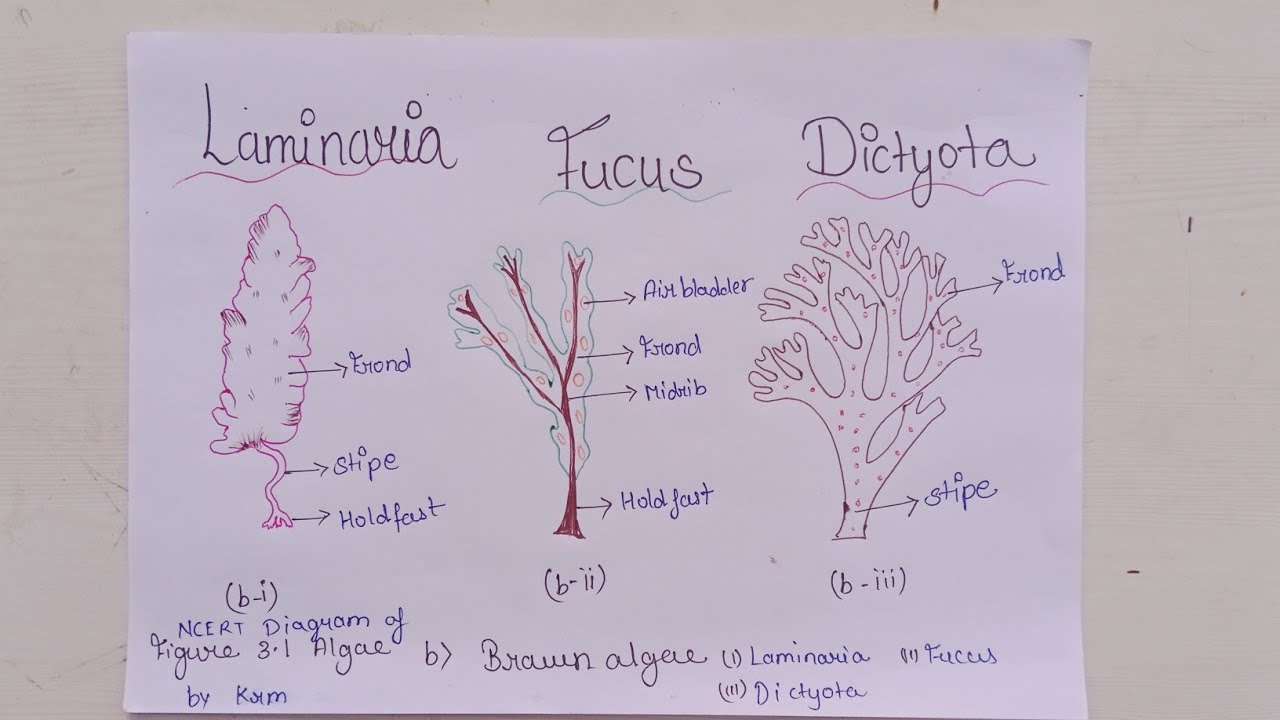 Laminaria
Fucus
Dictyota
Frond
Stipe
Holdfast
(b-i)
Air bladder
Frond
Midrib
Holdfast
(b-ii)
Frond
Stipe
(b-iii)
NCERT Diagram of
Figure 3.1 Algae
by Krm
b) Brown algae (i) Laminaria (ii) Fucus
(iii) Dictyota